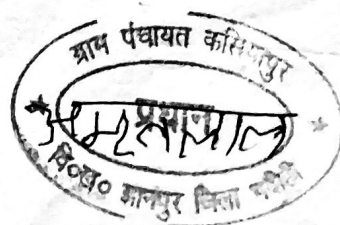 ग्राम पंचायत कसिदापुर
प्रधान
अमृतलाल
वि०ख० ज्ञानपुर जिला भदोही